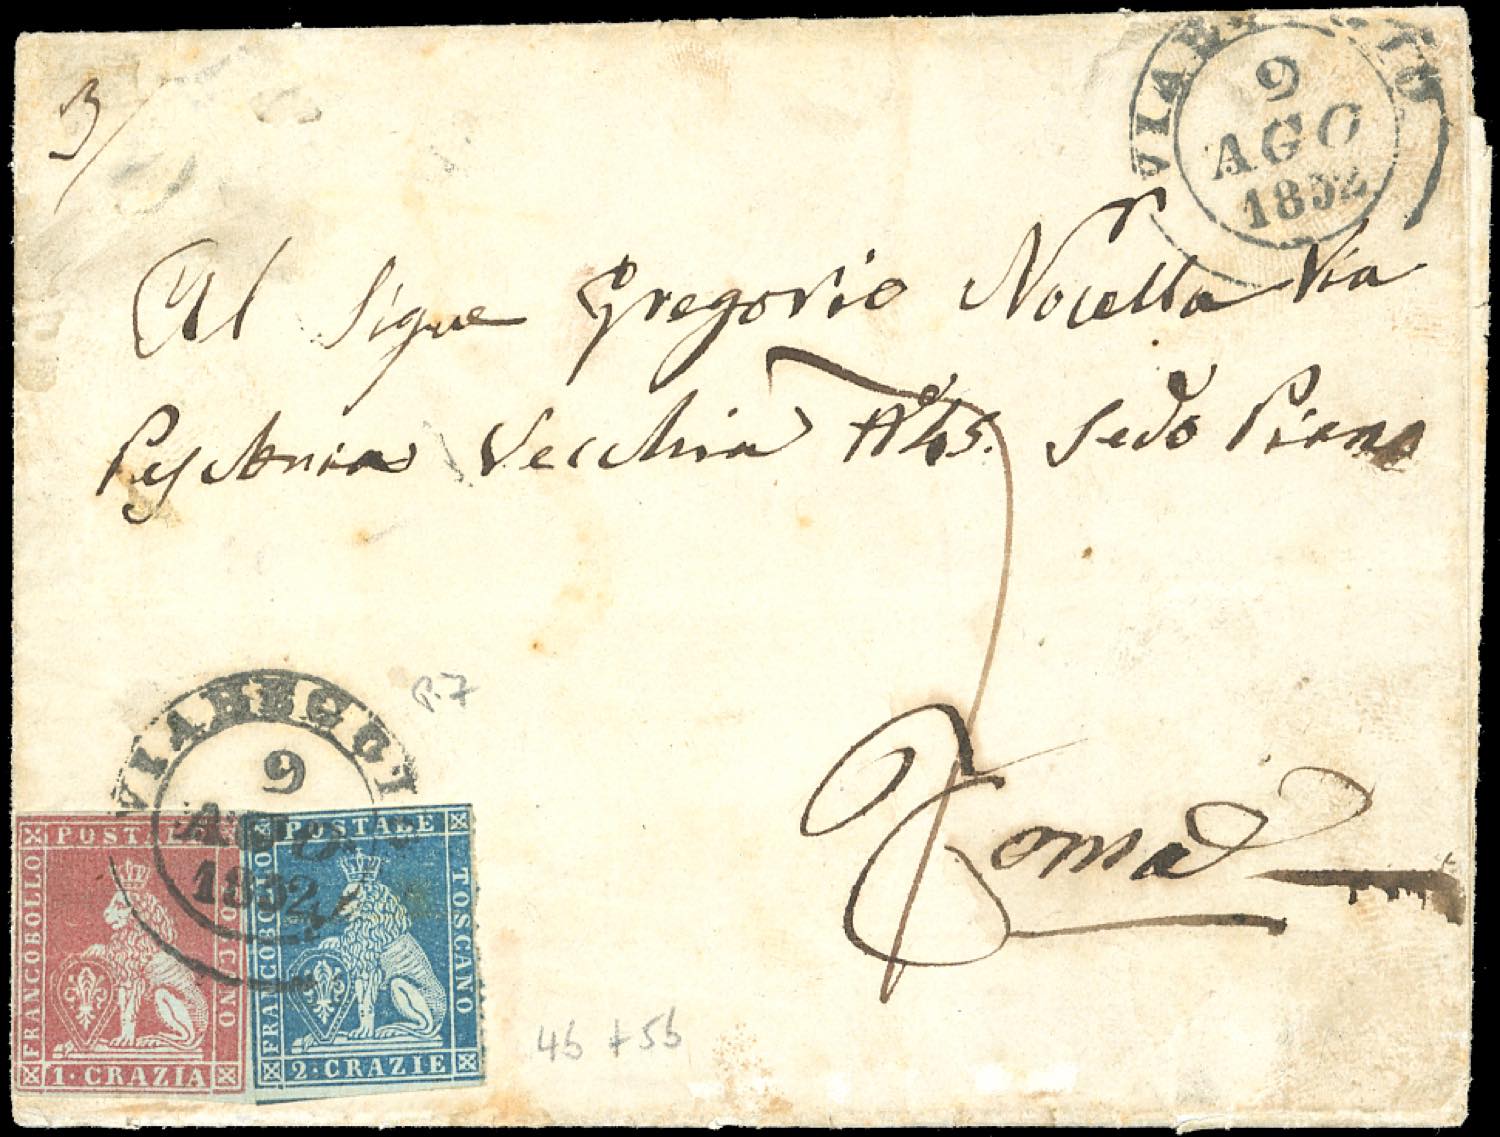 3/
VIAREGGIO
9
AGO
1852
Al Sigre Gregorio Nocella Via
Peschria Vecchia N° 45. Sedo Piano
7
Roma
p.7
VIAREGGIO
9
AGO
1852
POSTALE
FRANCOBOLLO
TOSCANO
1·CRAZIA
POSTALE
FRANCOBOLLO
TOSCANO
2·CRAZIE
4b + 5b